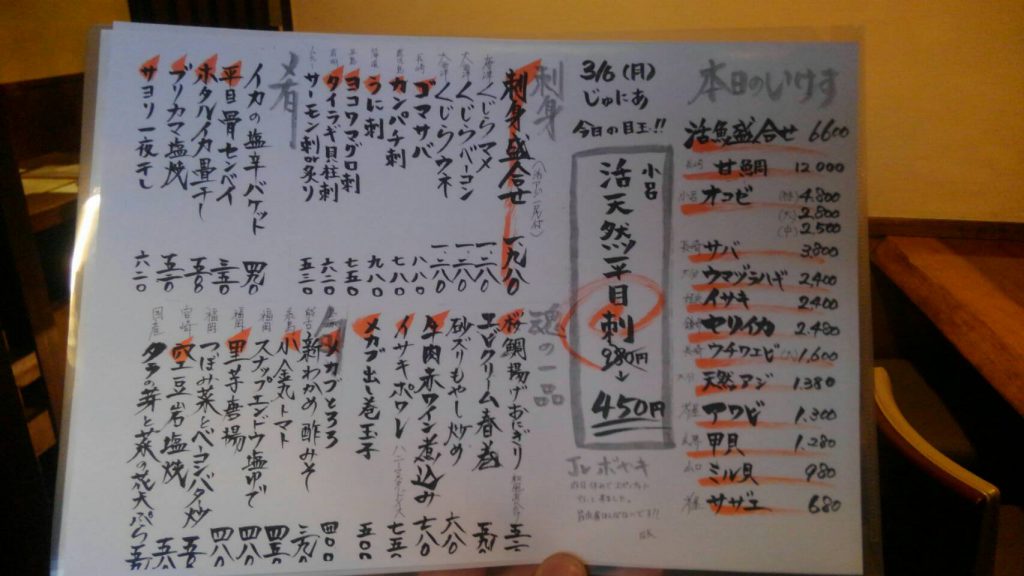 本日のいけす
活魚盛合せ 6600
長崎 甘鯛 12,000
オコゼ (特) 4,800
(大) 2,800
(中) 2,500
長崎 サバ 3800
大分 ウマヅラハギ 2,400
イサキ 2,400
ヤリイカ 2,480
長崎 ウチワエビ (大) 1,600
大分 天然アジ 1,380
アワビ 1,300
甲貝 1,280
山口 ミル貝 980
サザエ 680
3/6 (月)
じゅにあ
今日の目玉!!
小呂
活天然平目刺
980円→
450円
Jr ボヤキ
刺身
刺身盛合せ 一、九八〇
くじらマメ 一、二八〇
大津 くじらベーコン 一、二八〇
大津 くじらウネ 一、二八〇
長崎 ゴマサバ 八八〇
カンパチ刺 七八〇
うに刺 九八〇
ヨコワマグロ刺 七五〇
タイラギ貝柱刺 六二〇
サーモン刺or炙り 五二〇
肴
イカの塩辛バケット 四九〇
平目骨センベイ 三五〇
ホタルイカ畳干し 五五〇
ブリカマ塩焼 五二〇
サヨリ一夜干し 六二〇
魂の一品
桜鯛揚げおにぎり
エビクリーム春巻 五九〇
砂ズリもやし炒め 六八〇
牛肉赤ワイン煮込み 七八〇
イサキポワレ 七五〇
メカブ出し巻玉子 五〇〇
メカブとろろ 四〇〇
新わかめ酢みそ 三九〇
小金丸トマト 四五〇
福岡 スナップエンドウ塩ゆで 四八〇
福岡 里芋唐揚 四八〇
福岡 つぼみ菜とベーコンバター炒 五五〇
宮崎 空豆岩塩焼 五八〇
国産 タラの芽と菜の花天ぷら 五五〇